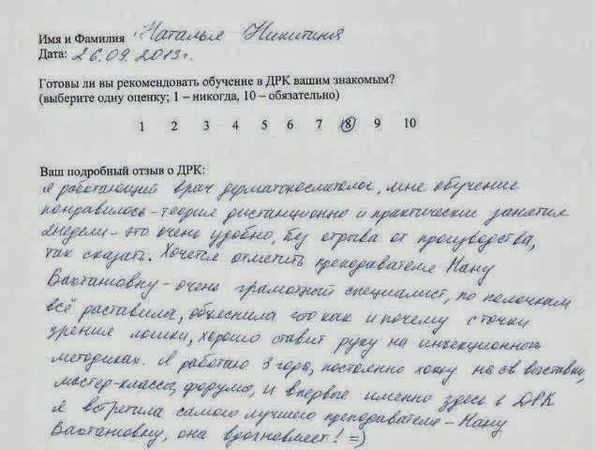 Имя и Фамилия Наталья Никитина
Дата: 26.09.2013г.
Готовы ли вы рекомендовать обучение в ДРК вашим знакомым?
(выберите одну оценку; 1 – никогда, 10 – обязательно)
1 2 3 4 5 6 7 8 9 10
Ваш подробный отзыв о ДРК:
Я работающий врач дерматокосметолог, мне обучение
понравилось – теория дистанционно и практические занятия
2недели – это очень удобно, без отрыва от производства,
так сказать. Хочется отметить преподавателя Нану
Вахтанговну – очень грамотный специалист, по полочкам
всё расставила, объяснила что как и почему с точки
зрения логики, хорошо ставит руку на инъекционных
методиках. Я работаю 3 года, постоянно хожу на выставки,
мастер-классы, форумы, и впервые именно здесь в ДРК
я встретила самого лучшего преподавателя – Нану
Вахтанговну, она вдохновляет! =)